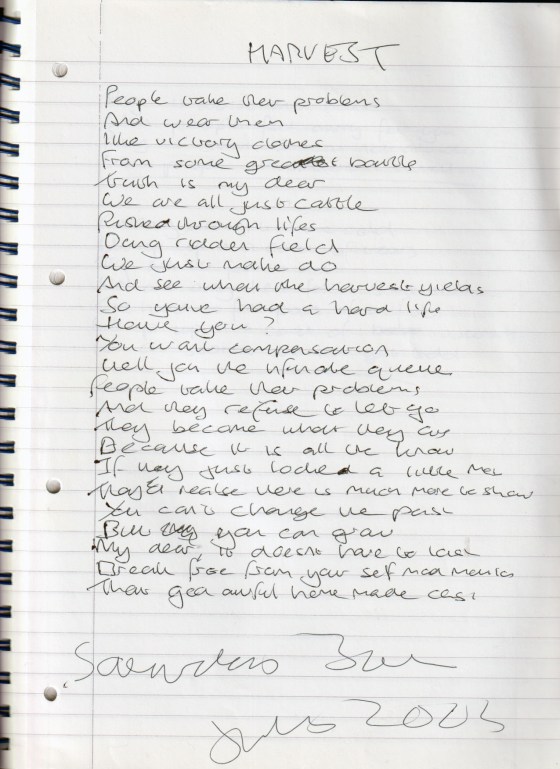 HARVEST
People take their problems
And wear them
like victory clothes
From some greatest battle
truth is my dear
We are all just cattle
Pushed through lifes
Dung ridden field
We just make do
And see what the harvest yields
So youve had a hard life
Have you?
You want compensation
well join the infinite queue
People take their problems
And they refuse to let go
they become what they are
Because it is all they know
If they just looked a little more
they'd realise there is much more to show
You can't change the past
But you can grow
My dear, it doesnt have to last
Break free from your self made
That god awful home made cast
Saunders
2003